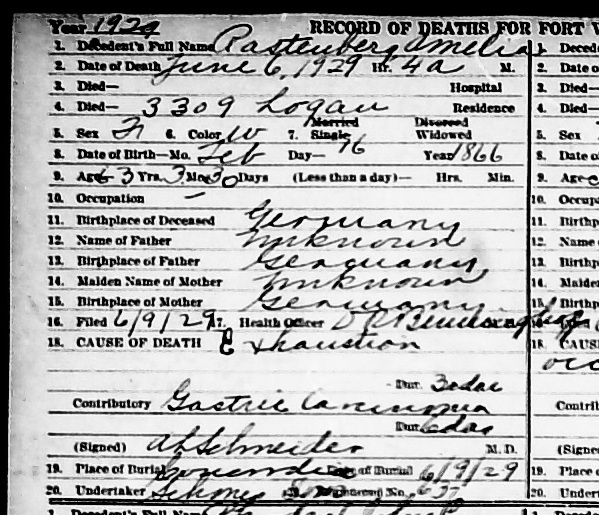 Year 1929 RECORD OF DEATHS FOR FORT
1. Decedent's Full Name Rastenberg, Amelia
2. Date of Death June 6, 1929 Hr. 4a M.
3. Died— Hospital
4. Died— 3309 Logan Residence
Married Divorced
5. Sex F 6. Color W 7. Single Widowed
8. Date of Birth—Mo. Feb Day— 16 Year 1866
9. Age 63 Yrs. 3 Mo. 30 Days (Less than a day)— Hrs. Min.
10. Occupation —
11. Birthplace of Deceased Germany
12. Name of Father Unknown
13. Birthplace of Father Germany
14. Maiden Name of Mother Unknown
15. Birthplace of Mother Germany
16. Filed 6/9/29 17. Health Officer
18. CAUSE OF DEATH Exhaustion
Dur. 30 das
Contributory Gastric Carcinoma
Dur. 6 das
(Signed) A Schneider M.D.
19. Place of Burial Date of Burial 6/9/29
20. Undertaker Sons No.
1. Decedent's Full Name
1. Deced
2. Date o
3. Died—
4. Died—
5. Sex
8. Date o
9. Age
10. Occup
11. Birthp
12. Name
13. Birthp
14. Maiden
15. Birthp
18. CAUS
Contrib
(Signe
19. Place
20. Under
1. Deced